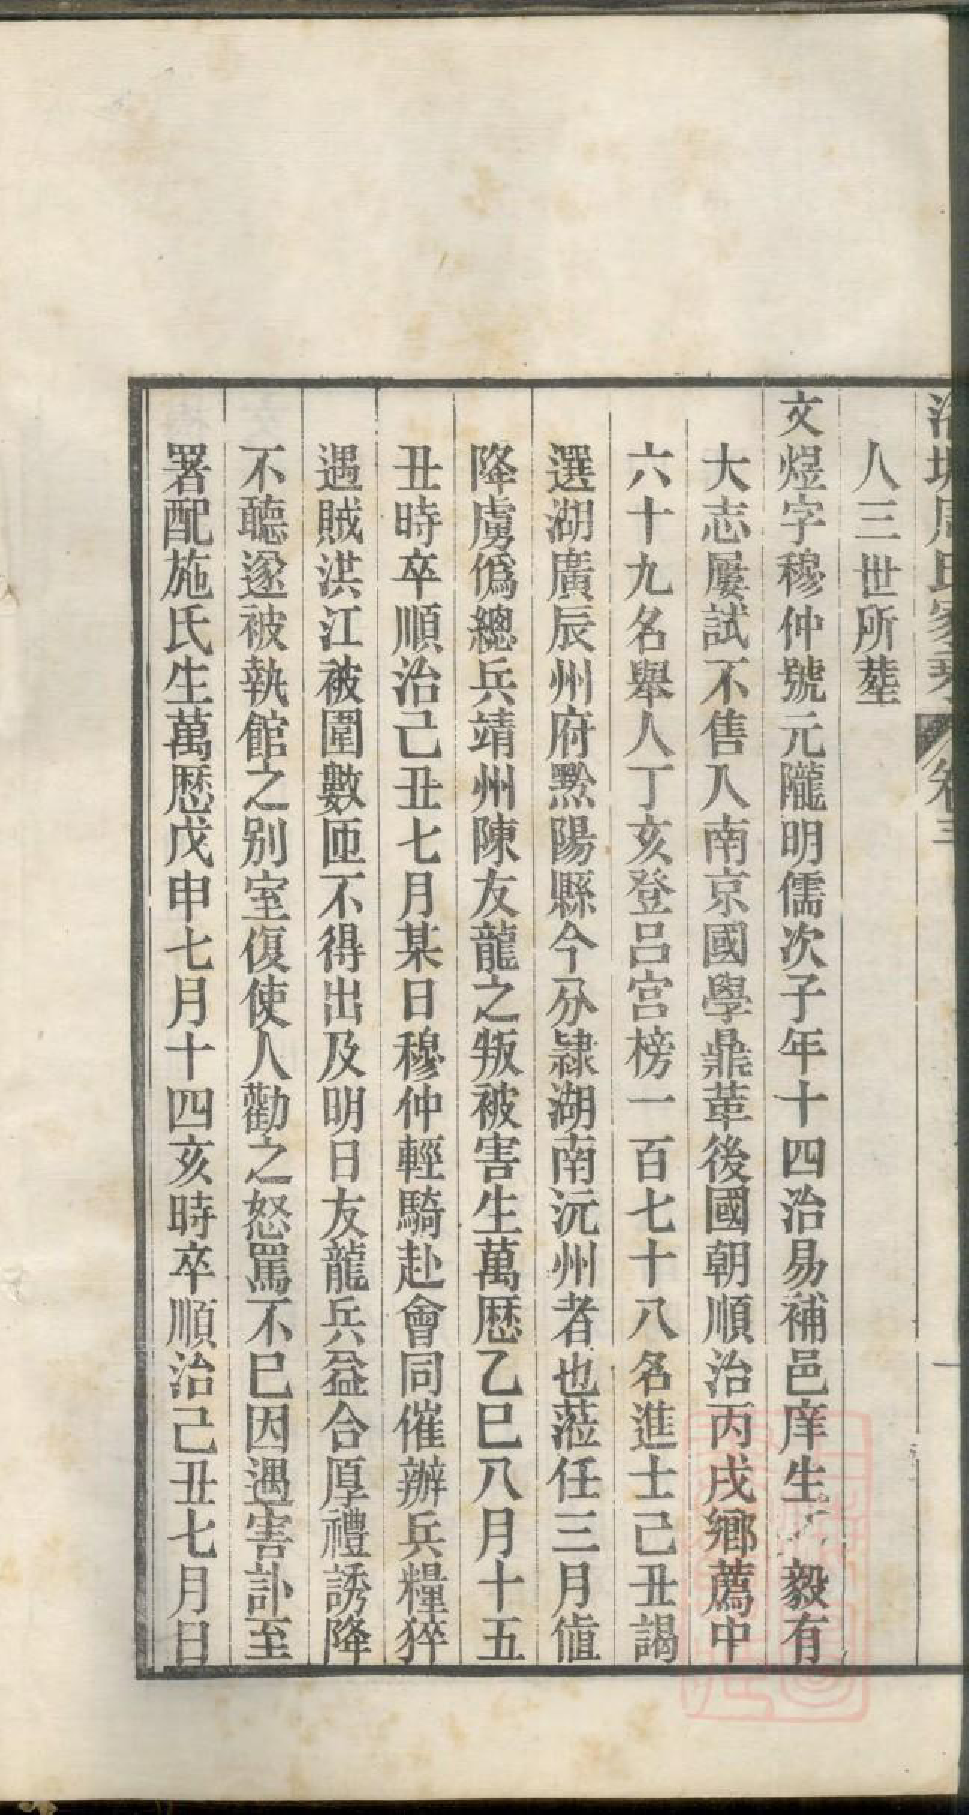 周氏家乘 卷三
人三世所塟
文煜字穆仲號元隴明儒次子年十四治易補邑庠生毅有
大志屢試不售入南京國學鼎革後國朝順治丙戌鄉薦中
六十九名舉人丁亥登呂宮榜一百七十八名進士己丑謁
選湖廣辰州府黔陽縣今分隷湖南沅州者也蒞任三月值
降虜僞總兵靖州陳友龍之叛被害生萬歴乙巳八月十五
丑時卒順治己丑七月某日穆仲輕騎赴會同催辦兵糧猝
遇賊洪江被圍數匝不得出及明日友龍兵益合厚禮誘降
不聽遂被執館之别室復使人勸之怒罵不已因遇害訃至
署配施氏生萬歴戊申七月十四亥時卒順治己丑七月日